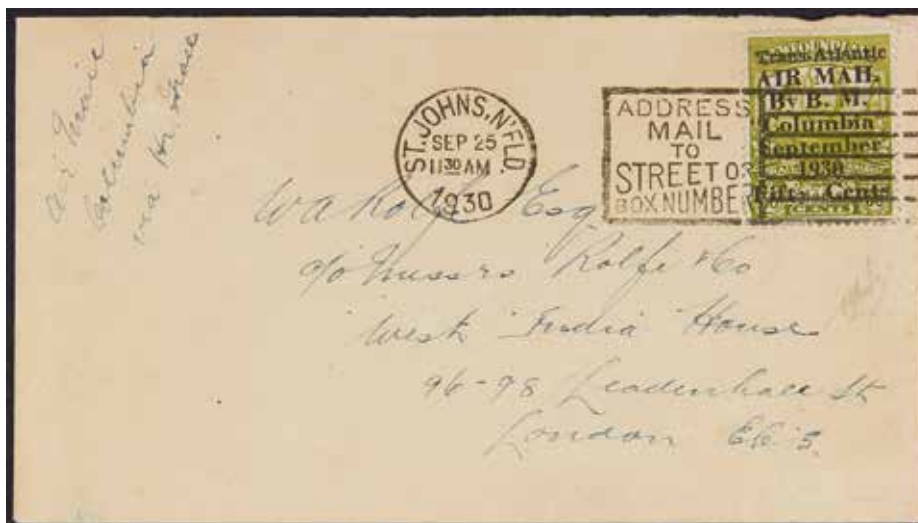 Air Mail
Columbia
via Hr Grace
ST. JOHNS, N'FLD.
SEP 25
11 30 AM
1930
ADDRESS
MAIL
TO
STREET OR
BOX NUMBER
Trans-Atlantic
AIR MAIL
By B. M.
Columbia
September
1930
Fifty Cents
CENTS
W A Rolfe Esq
c/o Messrs Rolfe & Co
West India House
96-98 Leadenhall St
London EC 3.